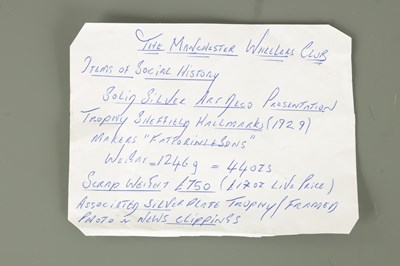 THE MANCHESTER WHEELERS CLUB
ITEMS OF SOCIAL HISTORY
SOLID SILVER ART DECO PRESENTATION
TROPHY SHEFFIELD HALLMARKS (1929)
MAKERS "FATTORINI & SONS"
WEIGHT = 1246g = 44OZS
SCRAP WEIGHT £750 (£17OZ LIVE PRICE)
ASSOCIATED SILVER PLATE TROPHY / FRAMED
PHOTO & NEWS CLIPPINGS